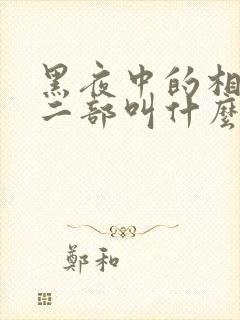 黑夜中的相
二部叫什麼
鄭和